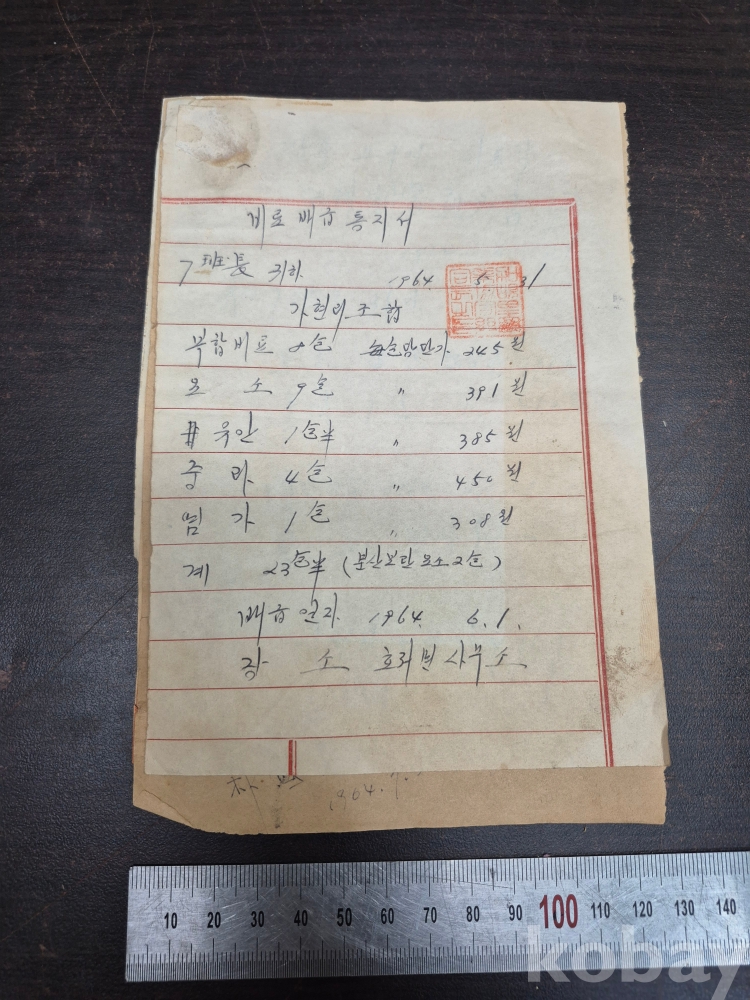 비료 배급 통지서
7 班長 귀하
1964. 5. 31
가현리 조합
복합비료 8包 每包當単가 245원
요소 9包 〃 391원
유안 1包半 〃 385원
중과 4包 〃 450원
염가 1包 〃 308원
계 23包半 (분산보탄 요소 2包)
배급일자 1964. 6. 1.
장소 호리면사무소
1964. 7.
10 20 30 40 50 60 70 80 90 100 110 120 130 140
kobay